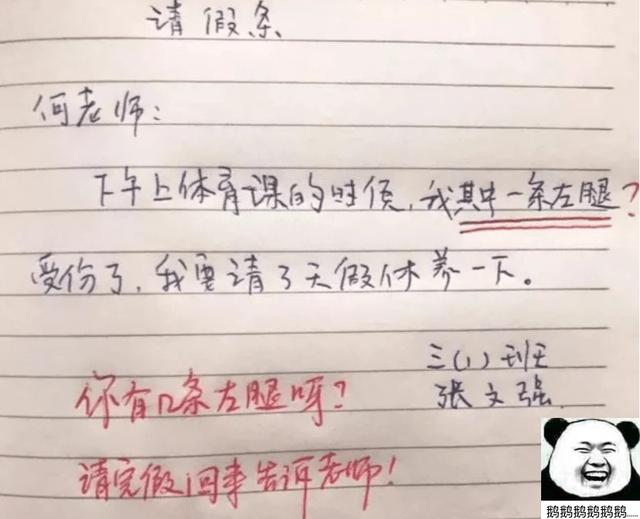 请假条
何老师:
下午上体育课的时候,我其中一条左腿?
受伤了,我要请3天假休养一下。
三(1)班
张文强
你有几条左腿呀?
请完假回来告诉老师!
鹅鹅鹅鹅鹅鹅......